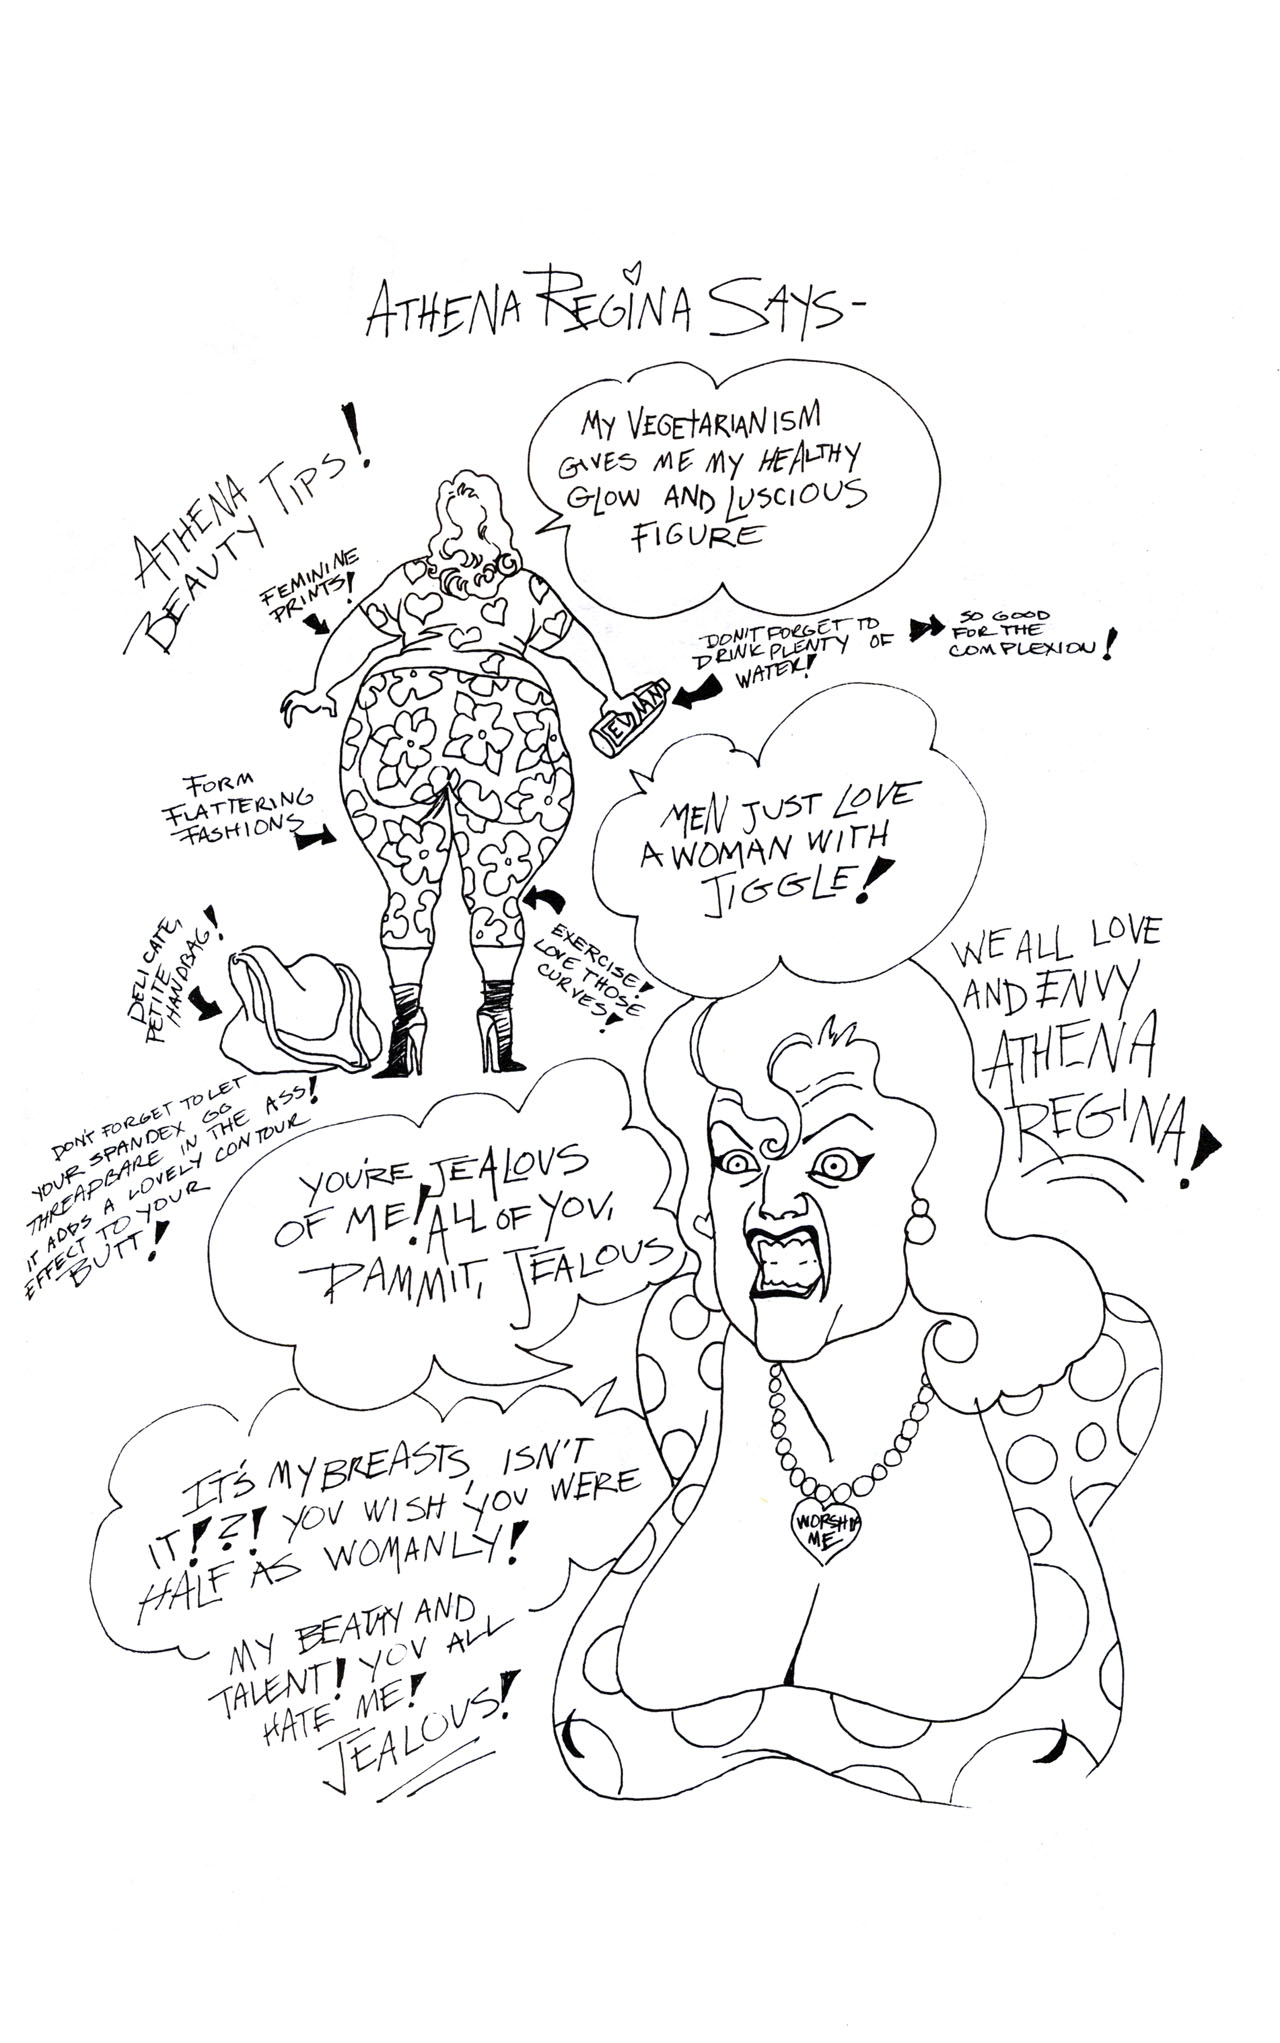 ATHENA REGINA SAYS-
MY VEGETARIANISM
GIVES ME MY HEALTHY
GLOW AND LUSCIOUS
FIGURE
ATHENA
BEAUTY TIPS!
FEMININE
PRINTS!
DON'T FORGET TO
DRINK PLENTY OF
WATER!
SO GOOD
FOR THE
COMPLEXION!
EVIAN
FORM
FLATTERING
FASHIONS
MEN JUST LOVE
A WOMAN WITH
JIGGLE!
DELICATE,
PETITE
HANDBAG!
EXERCISE!
LOVE THOSE
CURVES!
WE ALL LOVE
AND ENVY
ATHENA
REGINA!
DON'T FORGET TO LET
YOUR SPANDEX GO
THREADBARE IN THE ASS!
IT ADDS A LOVELY CONTOUR
EFFECT TO YOUR
BUTT!
YOU'RE JEALOUS
OF ME! ALL OF YOU,
DAMMIT, JEALOUS
IT'S MY BREASTS, ISN'T
IT!?! YOU WISH YOU WERE
HALF AS WOMANLY!
WORSHIP
ME
MY BEAUTY AND
TALENT! YOU ALL
HATE ME!
JEALOUS!